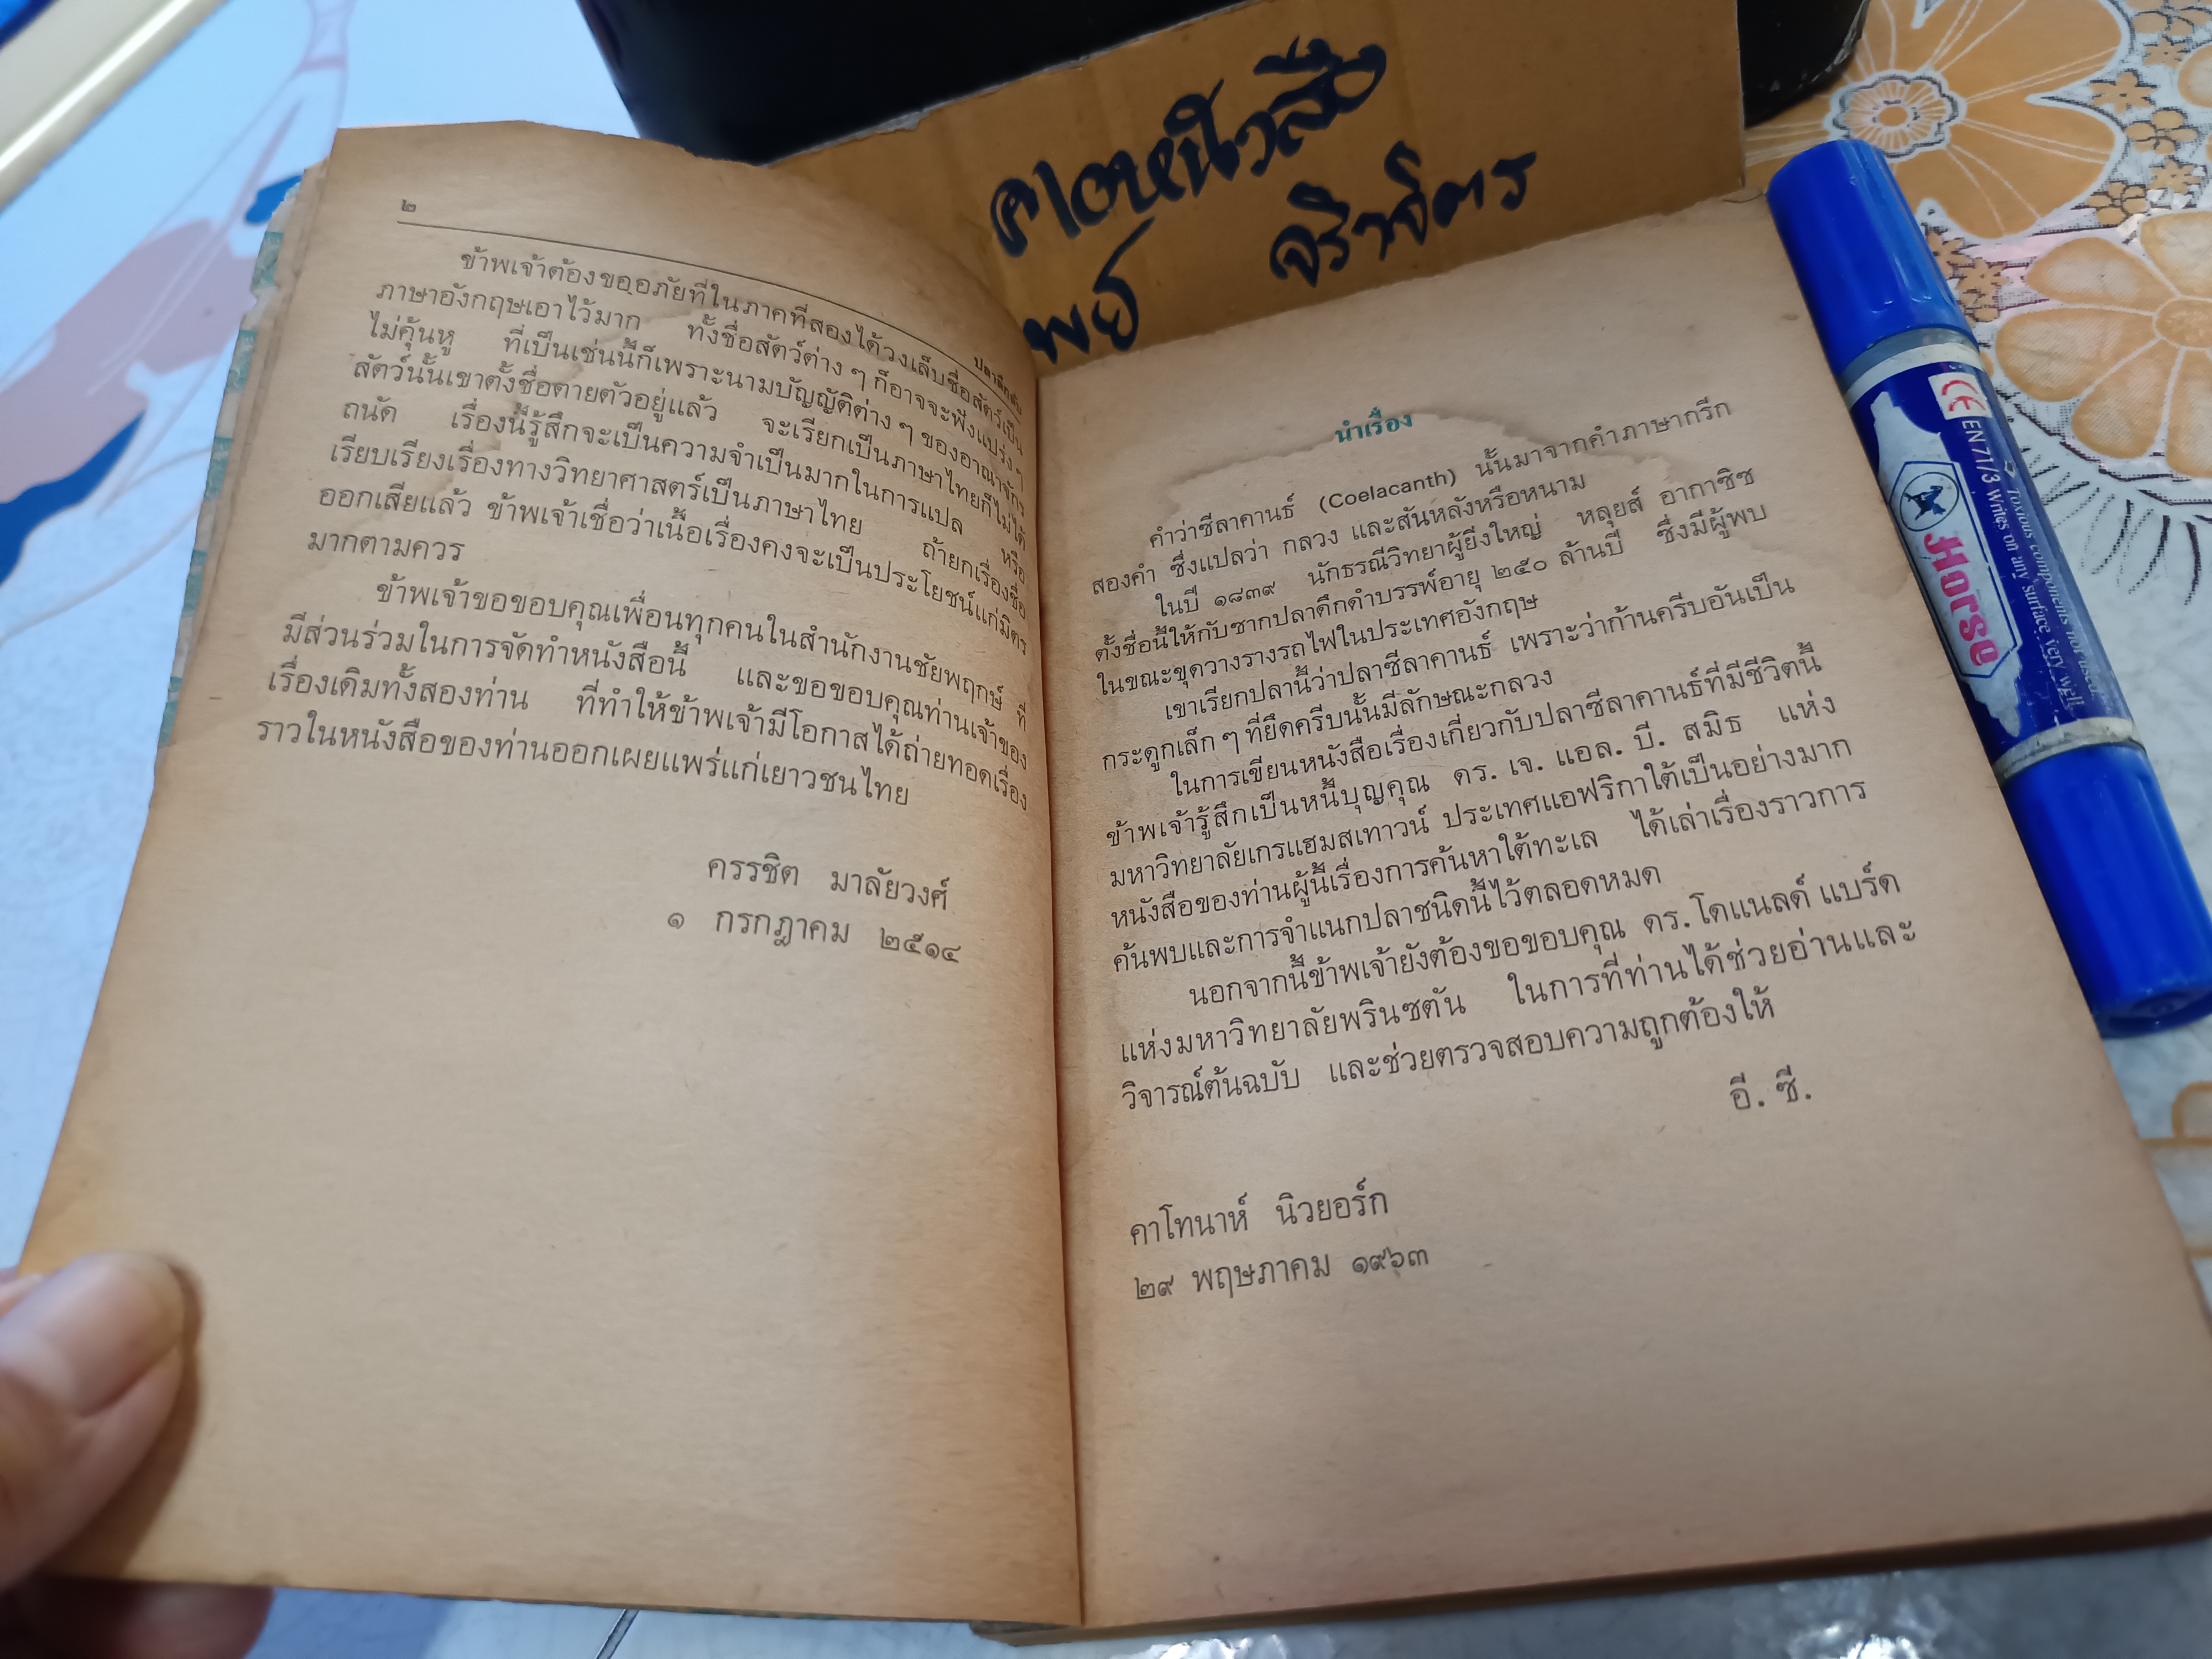 ดาวหนังสือ
พย์ จริาจิตร
๒
ปลาลึกลับ
ข้าพเจ้าต้องขออภัยที่ในภาคที่สองได้วงเล็บชื่อสัตว์เป็น
ภาษาอังกฤษเอาไว้มาก ทั้งชื่อสัตว์ต่าง ๆ ก็อาจจะฟังแปร่ง ๆ
ไม่คุ้นหู ที่เป็นเช่นนี้ก็เพราะนามบัญญัติต่าง ๆ ของอาณาจักร
สัตว์นั้นเขาตั้งชื่อตายตัวอยู่แล้ว จะเรียกเป็นภาษาไทยก็ไม่ได้
ถนัด เรื่องนี้รู้สึกจะเป็นความจำเป็นมากในการแปล หรือ
เรียบเรียงเรื่องทางวิทยาศาสตร์เป็นภาษาไทย ถ้ายกเรื่องชื่อ
ออกเสียแล้ว ข้าพเจ้าเชื่อว่าเนื้อเรื่องคงจะเป็นประโยชน์แก่มิตร
มากตามควร
ข้าพเจ้าขอขอบคุณเพื่อนทุกคนในสำนักงานชัยพฤกษ์ ที่
มีส่วนร่วมในการจัดทำหนังสือนี้ และขอขอบคุณท่านเจ้าของ
เรื่องเดิมทั้งสองท่าน ที่ทำให้ข้าพเจ้ามีโอกาสได้ถ่ายทอดเรื่อง
ราวในหนังสือของท่านออกเผยแพร่แก่เยาวชนไทย
ครรชิต มาลัยวงศ์
๑ กรกฎาคม ๒๕๑๔
นำเรื่อง
คำว่าซีลาคานธ์ (Coelacanth) นั้นมาจากคำภาษากรีก
สองคำ ซึ่งแปลว่า กลวง และสันหลังหรือหนาม
ในปี ๑๘๓๙ นักธรณีวิทยาผู้ยิ่งใหญ่ หลุยส์ อากาซิซ
ตั้งชื่อนี้ให้กับซากปลาดึกดำบรรพ์อายุ ๒๕๐ ล้านปี ซึ่งมีผู้พบ
ในขณะขุดวางรางรถไฟในประเทศอังกฤษ
เขาเรียกปลานี้ว่าปลาซีลาคานธ์ เพราะว่าก้านครีบอันเป็น
กระดูกเล็ก ๆ ที่ยึดครีบนั้นมีลักษณะกลวง
ในการเขียนหนังสือเรื่องเกี่ยวกับปลาซีลาคานธ์ที่มีชีวิตนี้
ข้าพเจ้ารู้สึกเป็นหนี้บุญคุณ ดร. เจ. แอล. บี. สมิธ แห่ง
มหาวิทยาลัยเกรแฮมสเทาวน์ ประเทศแอฟริกาใต้เป็นอย่างมาก
หนังสือของท่านผู้นี้เรื่องการค้นหาใต้ทะเล ได้เล่าเรื่องราวการ
ค้นพบและการจำแนกปลาชนิดนี้ไว้ตลอดหมด
นอกจากนี้ข้าพเจ้ายังต้องขอขอบคุณ ดร. โดแนลด์ แบร์ด
แห่งมหาวิทยาลัยพรินซตัน ในการที่ท่านได้ช่วยอ่านและ
วิจารณ์ต้นฉบับ และช่วยตรวจสอบความถูกต้องให้
อี. ซี.
คาโทนาห์ นิวยอร์ก
๒๙ พฤษภาคม ๑๙๖๓
CE EN 71/3 Writes on any surface very well
Toxious components not used
Horse